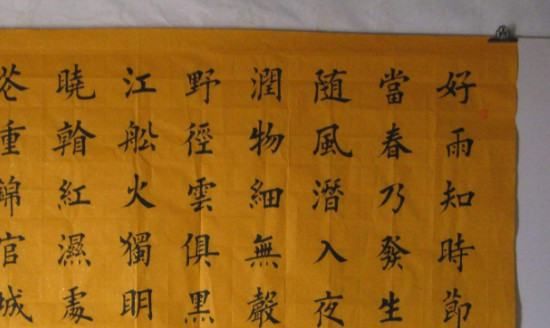 好雨知時節
當春乃發生
随風潛入夜
潤物細無聲
野徑雲俱黑
江船火獨明
曉翰紅濕處
花重錦官城